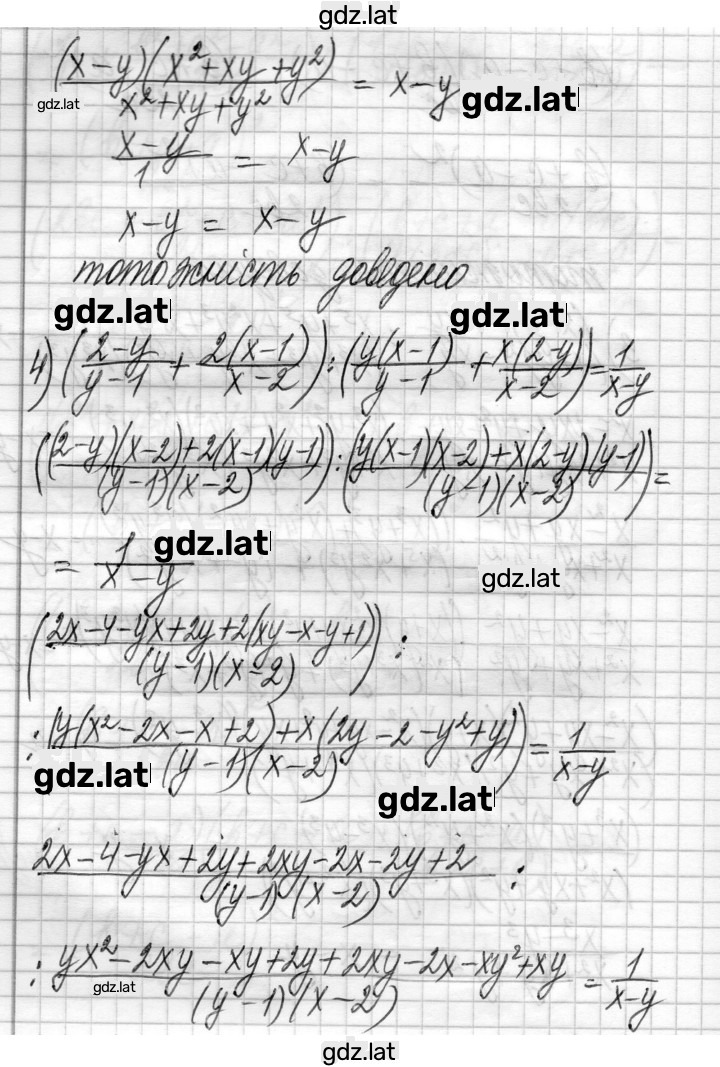 gdz.lat
(x-y)(x²+xy+y²) / x²+xy+y² = x-y
gdz.lat gdz.lat
x-y / 1 = x-y
x-y = x-y
тотожність доведено
gdz.lat gdz.lat
4) (2-y / y-1 + 2(x-1) / x-2) : (y(x-1) / y-1 + x(2-y) / x-2) = 1 / x-y
((2-y)(x-2)+2(x-1)(y-1) / (y-1)(x-2)) : (y(x-1)(x-2)+x(2-y)(y-1) / (y-1)(x-2)) =
= 1 / x-y gdz.lat
gdz.lat
(2x-4-yx+2y+2(xy-x-y+1) / (y-1)(x-2)) :
: (y(x²-2x-x+2)+x(2y-2-y²+y) / (y-1)(x-2)) = 1 / x-y
gdz.lat gdz.lat
2x-4-yx+2y+2xy-2x-2y+2 / (y-1)(x-2) :
: yx²-2xy-xy+2y+2xy-2x-xy²+xy / (y-1)(x-2) = 1 / x-y
gdz.lat
gdz.lat